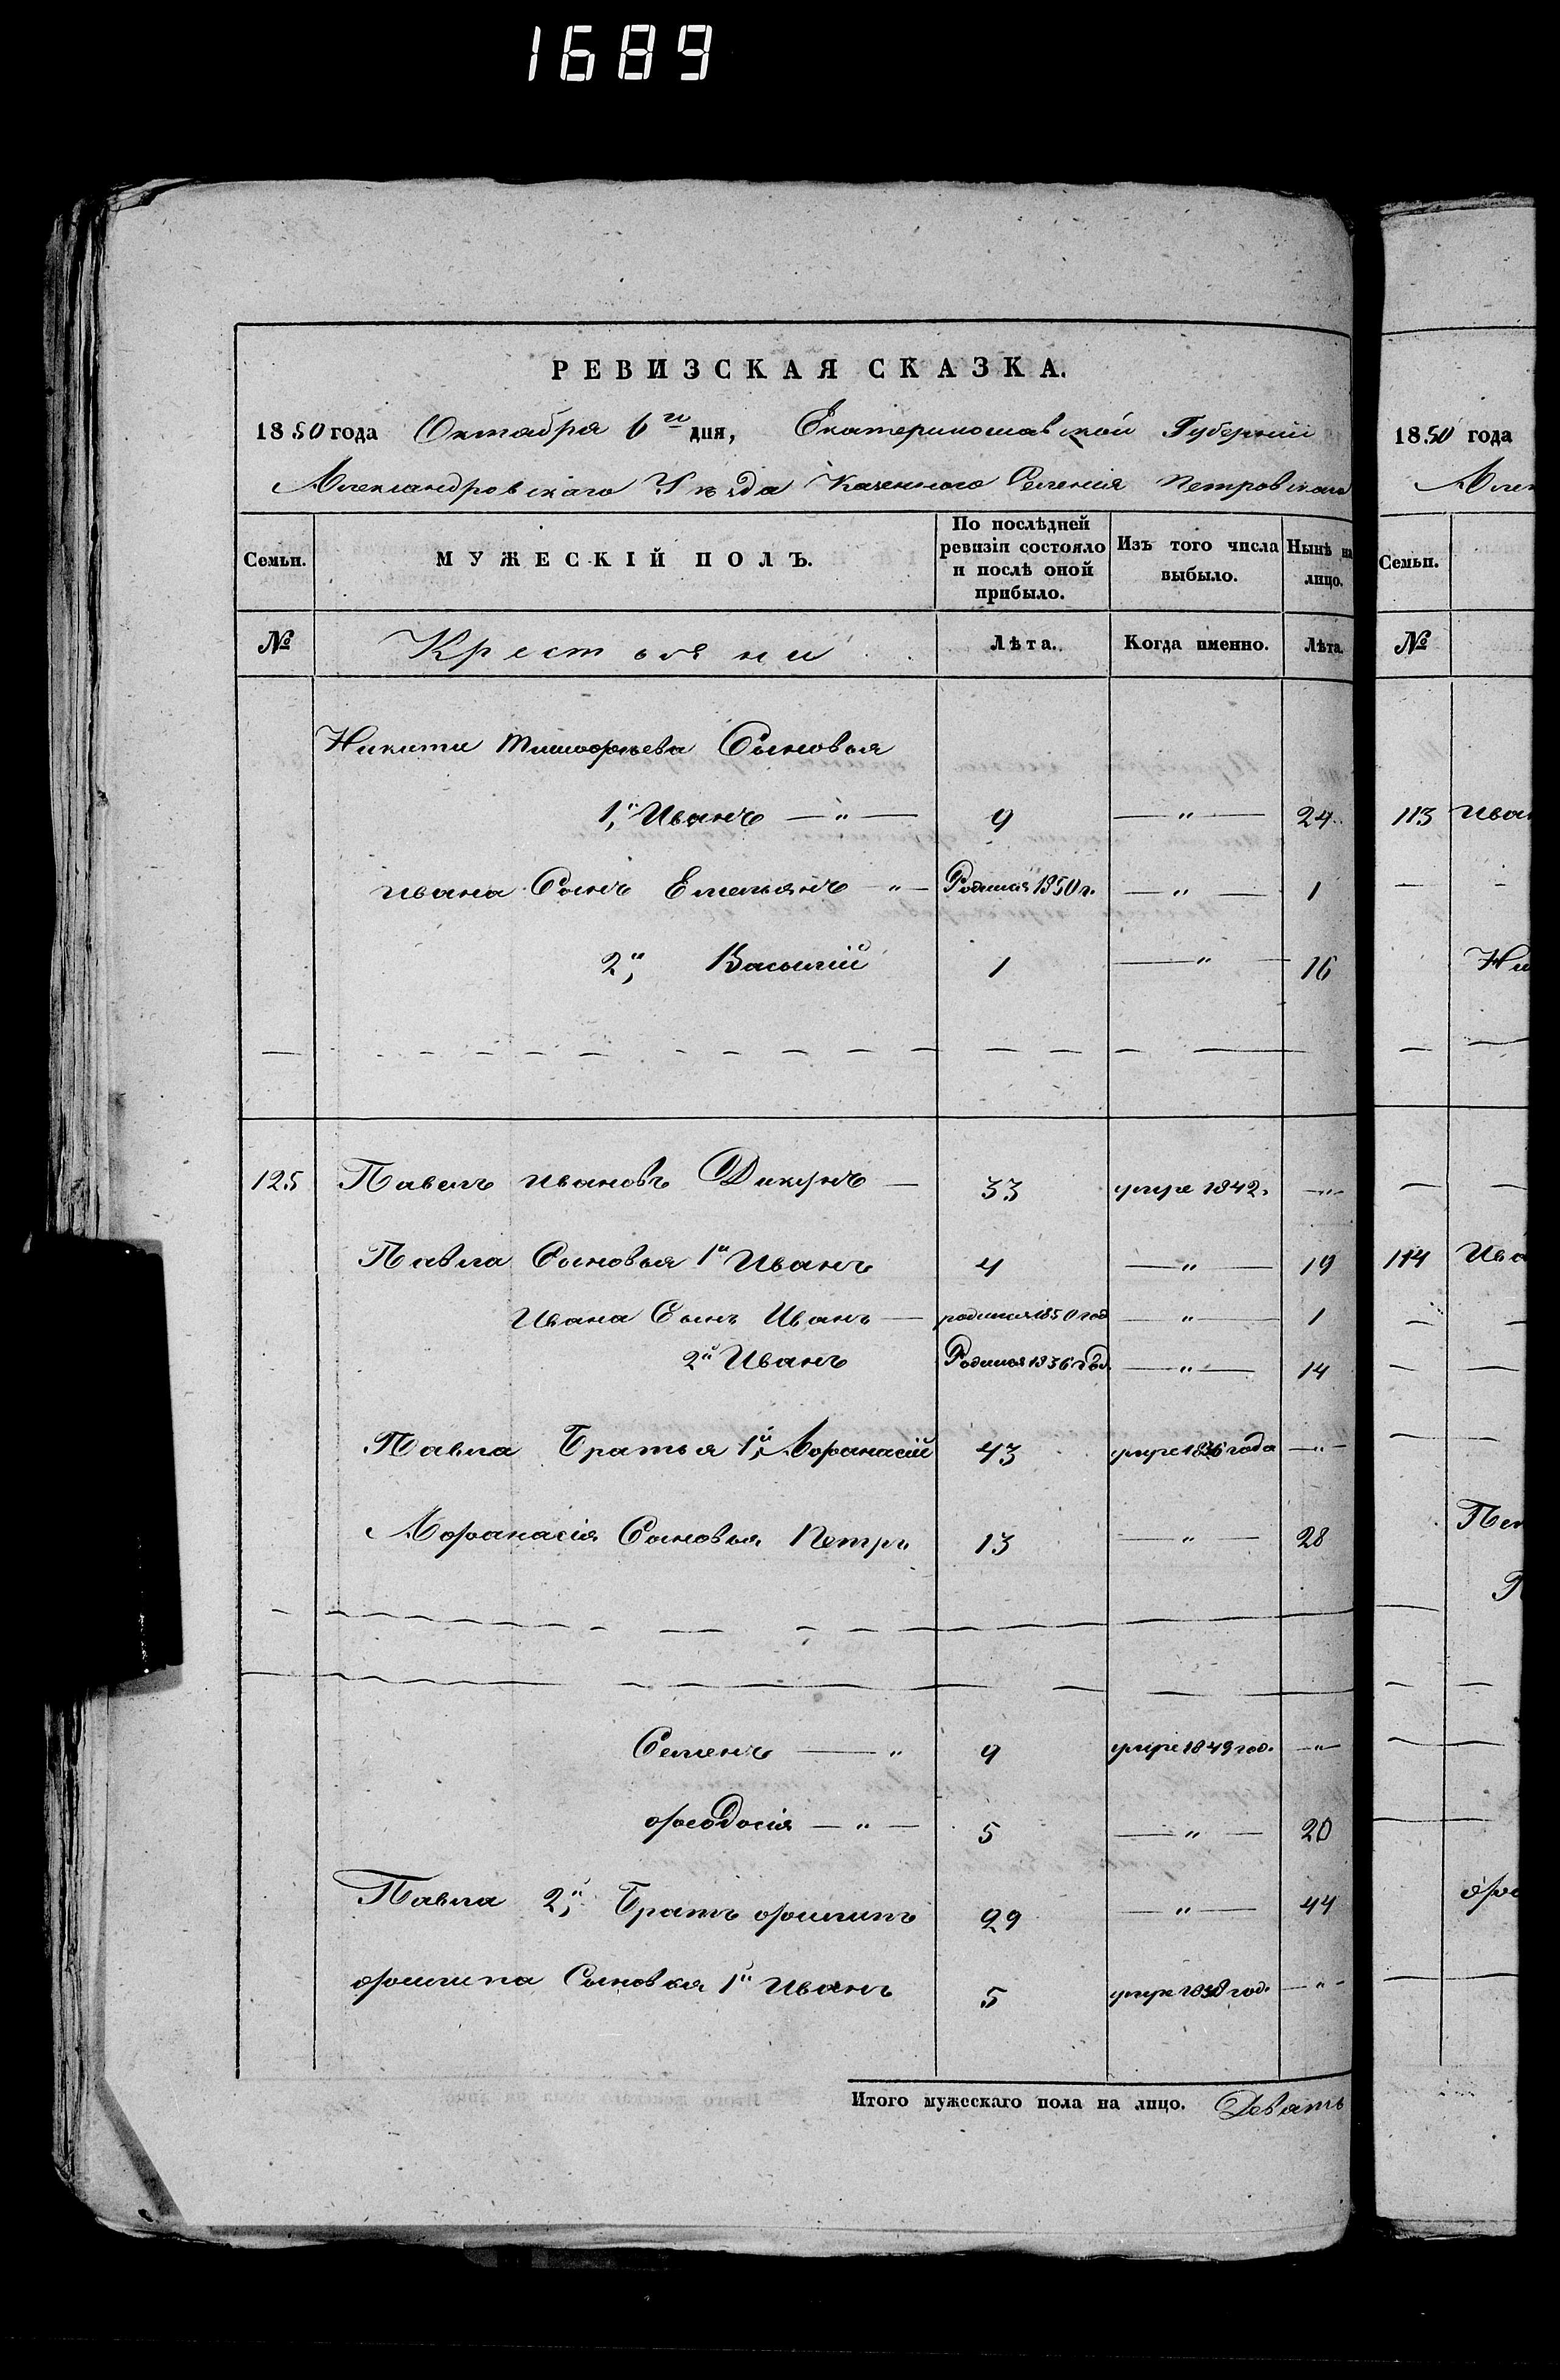 1689
РЕВИЗСКАЯ СКАЗКА.
1850 года Октября 6го дня, Екатеринославской Губернии
Александровскаго Уѣзда Казенного Селенія Петровскаго
Семьи. МУЖЕСКІЙ ПОЛЪ. По послѣдней ревизіи состояло и послѣ оной прибыло. Изъ того числа выбыло. Нынѣ на лицо.
№ Крестьяни Лѣта. Когда именно. Лѣта.
Никити Тимофѣева Сыновья
1й Иванъ — " — 9 — " — 24
Ивана Сынъ Емельянъ — " — Родился 1850 г. — " — 1
2й Василій 1 — " — 16
125 Павелъ Ивановъ Дикунъ — 33 умре 1842. — " —
Павла Сыновья 1й Иванъ 4 — " — 19
Ивана Сынъ Иванъ — родился 1850 год — " — 1
2й Иванъ Родился 1836 год. — " — 14
Павла Братья 1й Афанасій 43 умре 1836 года — " —
Афанасія Сыновья Петръ 13 — " — 28
Семенъ — " 9 умре 1849 год. — " —
Феодосія — " — 5 — " — 20
Павла 2й Братъ Филипъ 29 — " — 44
Филипа Сыновья 1й Иванъ 5 умре 1838 год. — " —
Итого мужескаго пола на лицо. Девять
1850 года
Алек
Семьи.
№
113 Иван
Ни
114 Ива